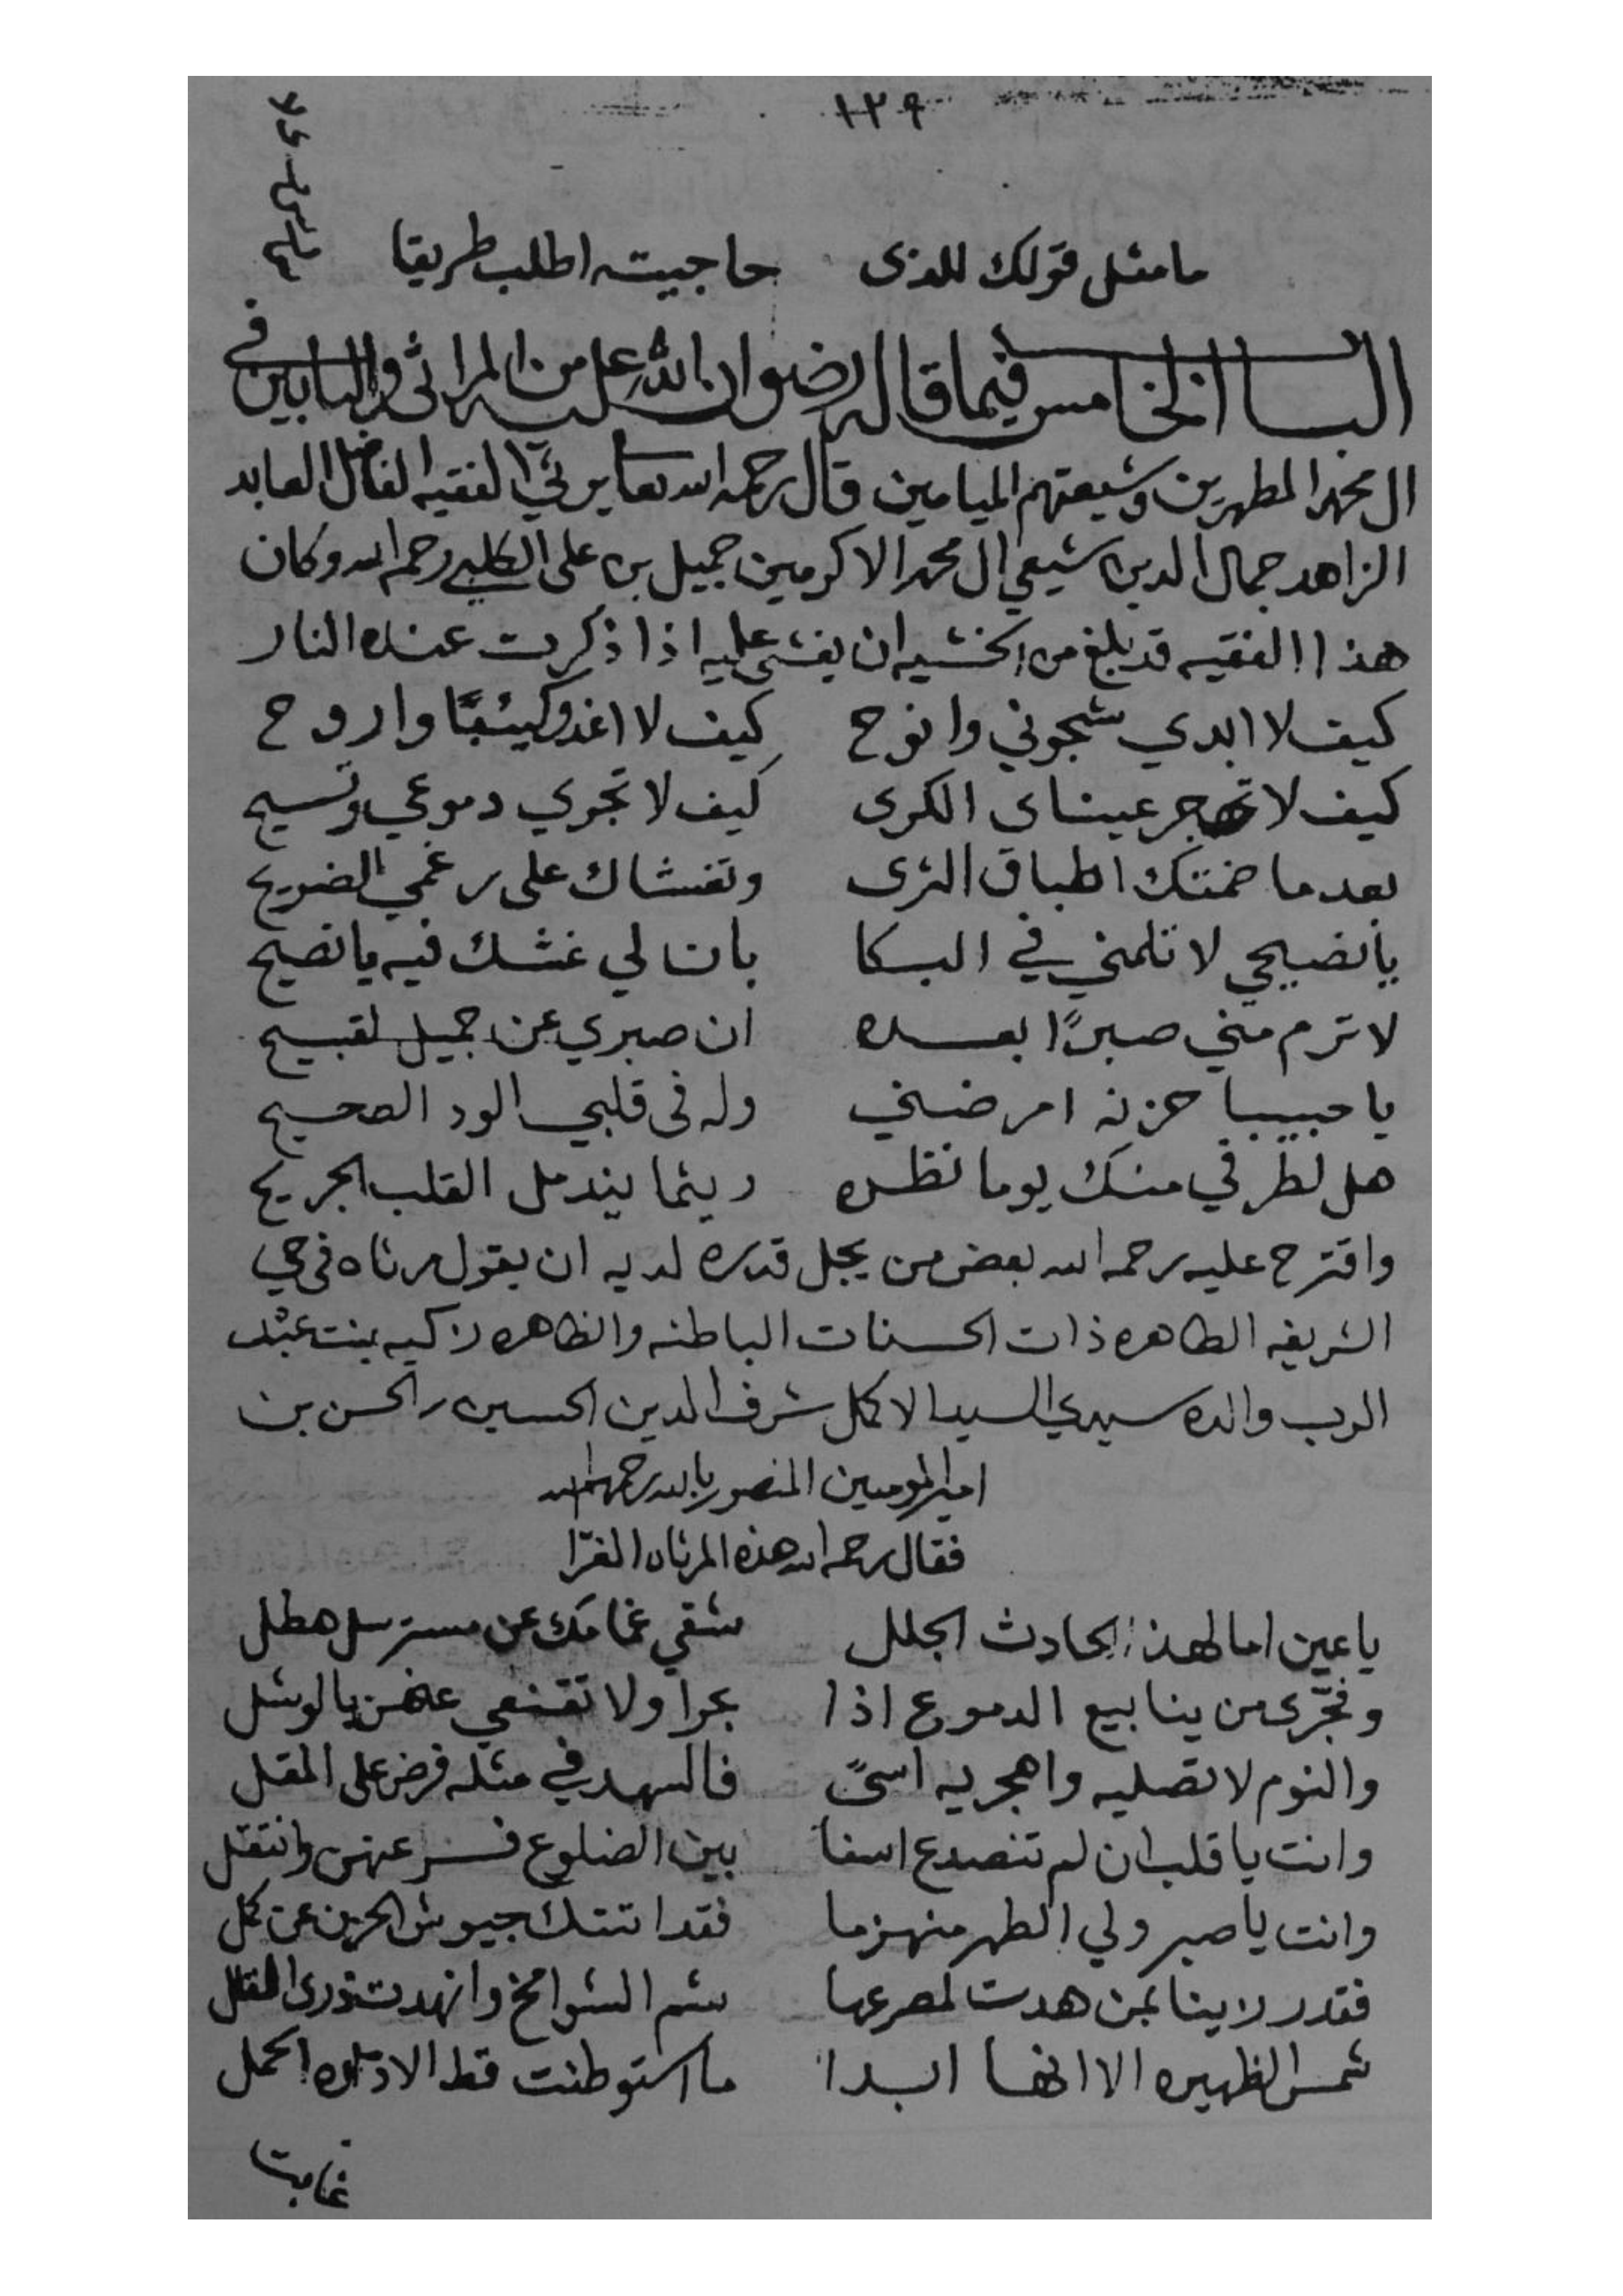 ١٢٩
ما مثل قولك للذى حاجيته اطلب طريقا
الباب الخامس فيما قاله رضوان الله عليه من المراثي والتابين في
ال محمد المطهرين وشيعتهم الميامين قال رحمه الله تعالى يرثي الفقيه الفاضل العابد
الزاهد جمال الدين شيعي ال محمد الاكرمين جميل بن علي الكلبي رحمه الله وكان
هذا الفقيه قد بلغ من الخشيه ان يغشى عليه اذا ذكرت عنده النار
كيف لا ابدي شجوني وانوح كيف لا اغدو كئيبًا واروح
كيف لا تهجر عيناى الكرى كيف لا تجري دموعي وتسيح
بعد ما ضمتك اطباق الثرى وتغشاك على رغمي الضريح
يا نصيحي لا تلمني في البكا بان لي غشك فيه يا نصيح
لا ترم مني صبرًا بعده ان صبري عن جميل لقبيح
يا حبيبا حزنه امرضني وله فى قلبي الود الصحيح
هل لطرفي منك يوما نظره ريثما يندمل القلب الجريح
واقترح عليه رحمه الله بعض من يجل قدره لديه ان يقول مرثاه فى حي
الشريفه الطاهره ذات الحسنات الباطنه والظاهره زكيه بنت عبد
الرب والده سيدي السيد الاكمل شرف الدين الحسين بن الحسن بن
امير المومنين المنصور بالله رحمهم الله
فقال رحمه الله هذه المرثاه الغرّا
يا عين اما لهذا الحادث الجلل شقي غمامك عن مسترسل هطل
وفجّرى من ينابيع الدموع اذا بحرا ولا تقنعي عنهن بالوشل
والنوم لا تصليه واهجريه اسىً فالسهد في مثله فرض على المقل
وانت يا قلب ان لم تنصدع اسفا بين الضلوع فسر عنهن وانتقل
وانت يا صبر ولي الظهر منهزما فقد اتتك جيوش الحزن عن كمل
فقد رزينا بمن هدت لمصرعها شم الشوامخ وانهدت ذرى القلل
شمس الظهيره الا انها ابدا ما استوطنت قط الا داره الحمل
غابت